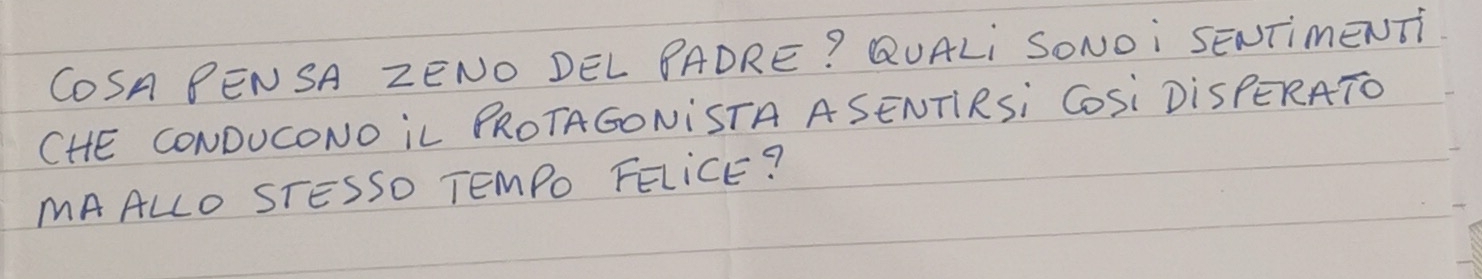 COSA PENSA ZENO DEL PADRE? QUALI SONO i SENTIMENTI
CHE CONDUCONO IL PROTAGONISTA A SENTIRSI COSI DISPERATO
MA ALLO STESSO TEMPO FELICE?